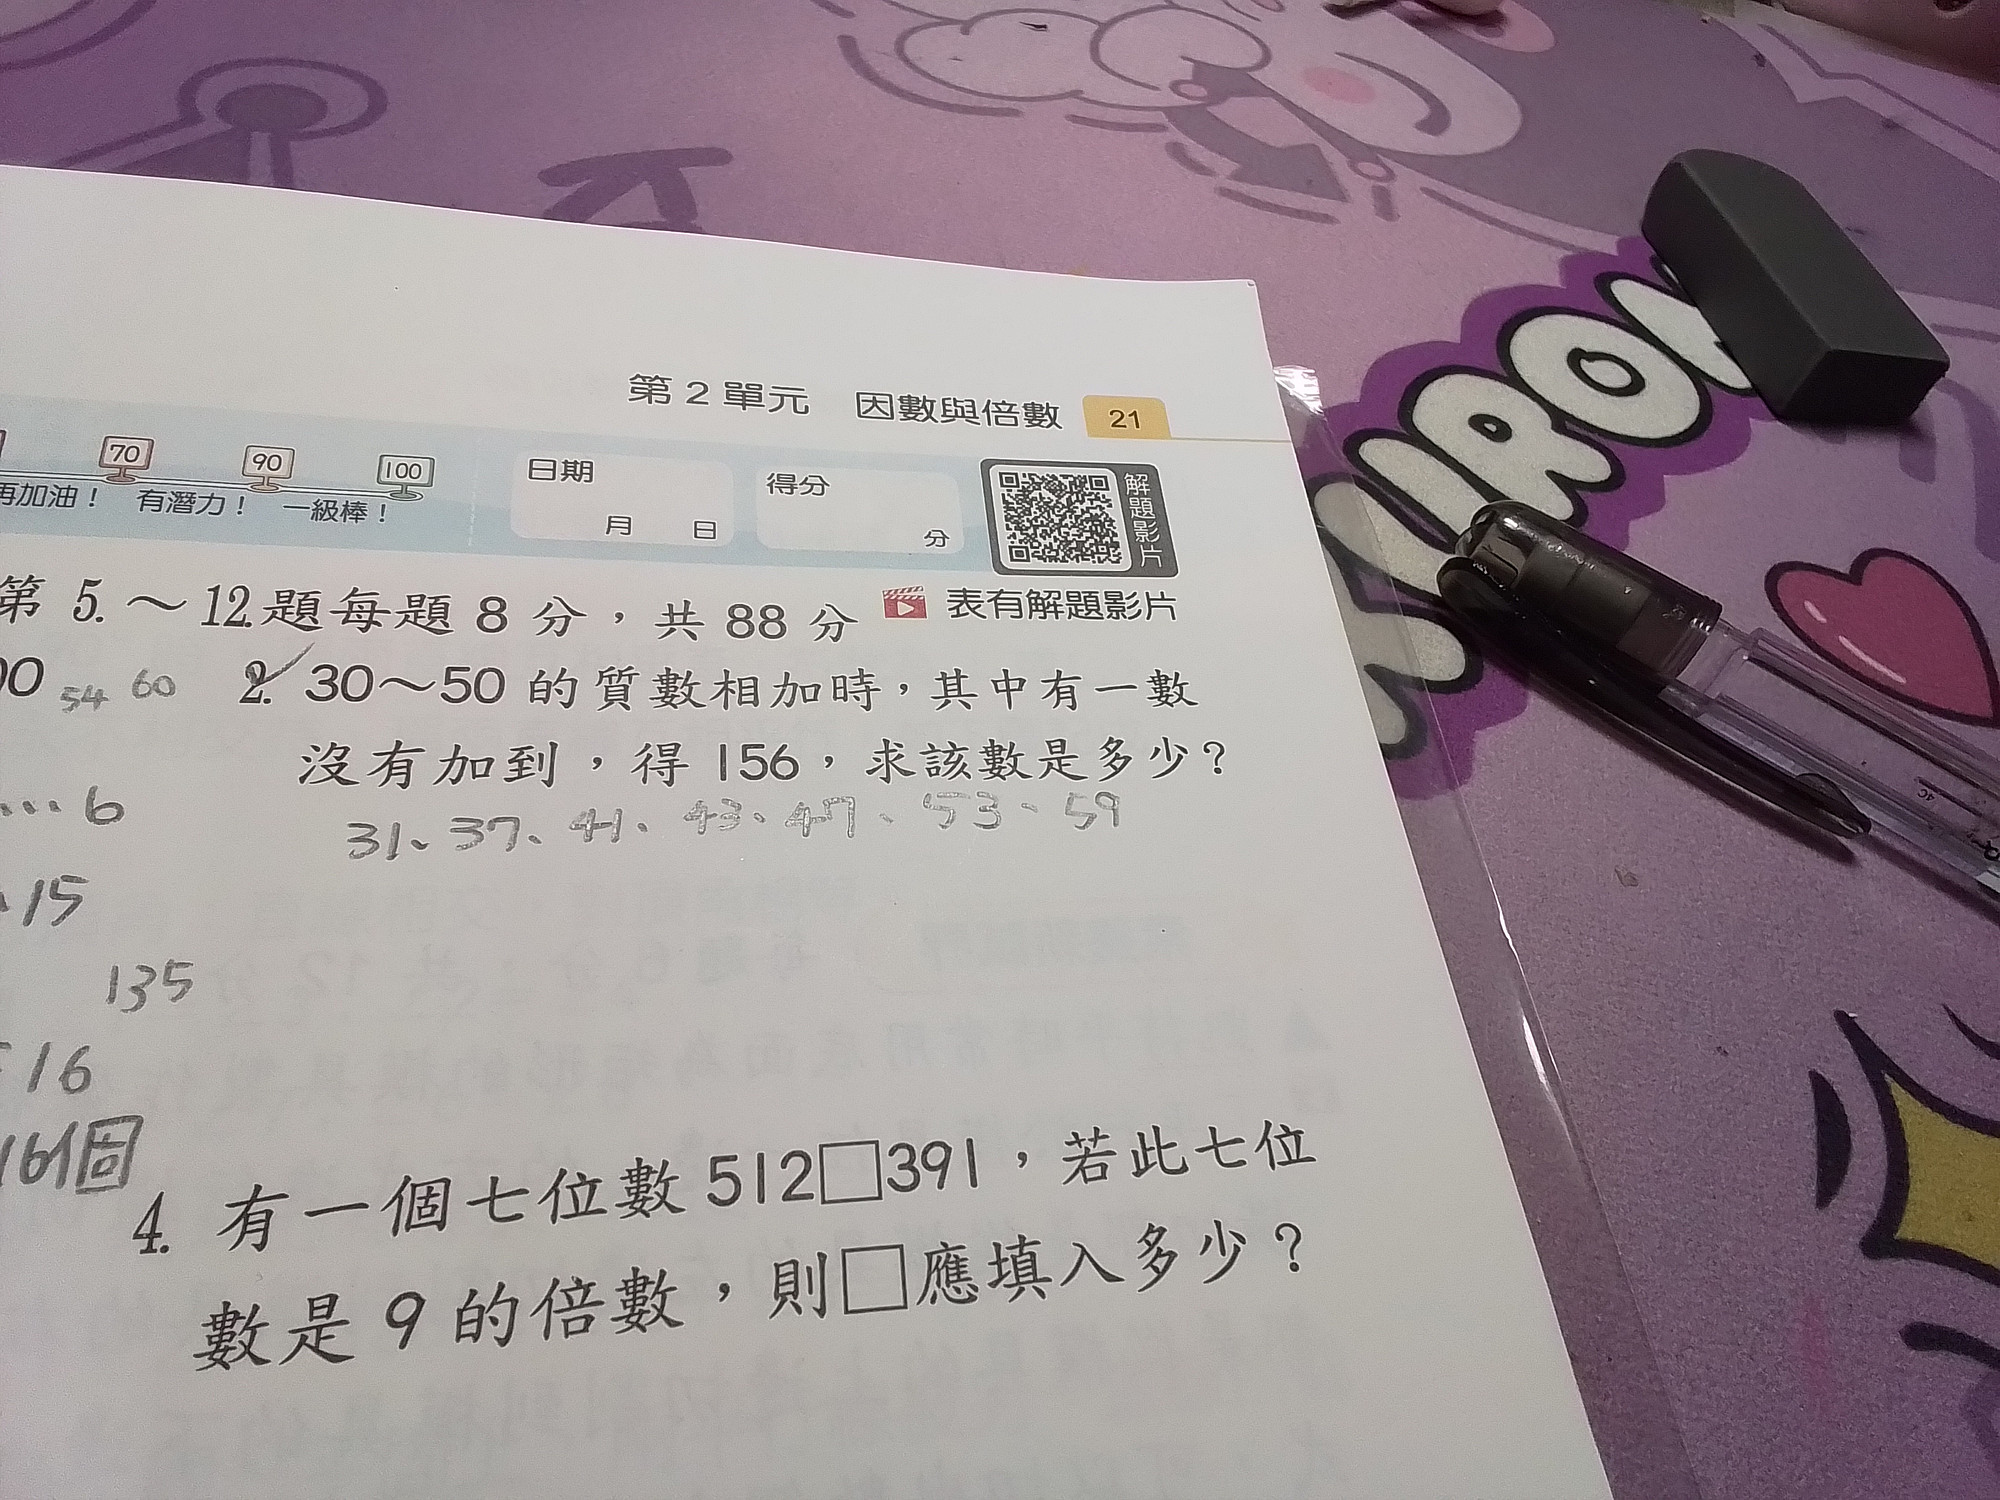 第 2 單元 因數與倍數 21
70 90 100
再加油! 有潛力! 一級棒!
日期 月 日
得分 分
解題影片
第 5.～12.題每題 8 分，共 88 分 表有解題影片
54 60
2. 30～50 的質數相加時，其中有一數
沒有加到，得 156，求該數是多少？
31、37、41、43、47、53、59
…6
15
135
16
16個
4. 有一個七位數 512□391，若此七位
數是 9 的倍數，則□應填入多少？